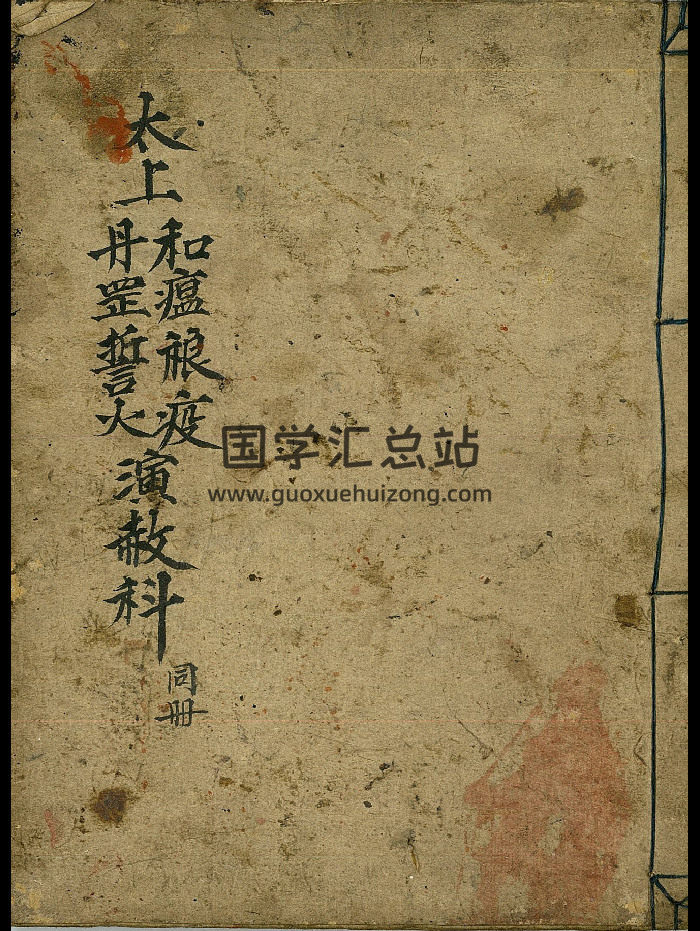 太上
和瘟䘙疫
丹罡誓火
演赦科
同册
国学汇总站
www.guoxuehuizong.com